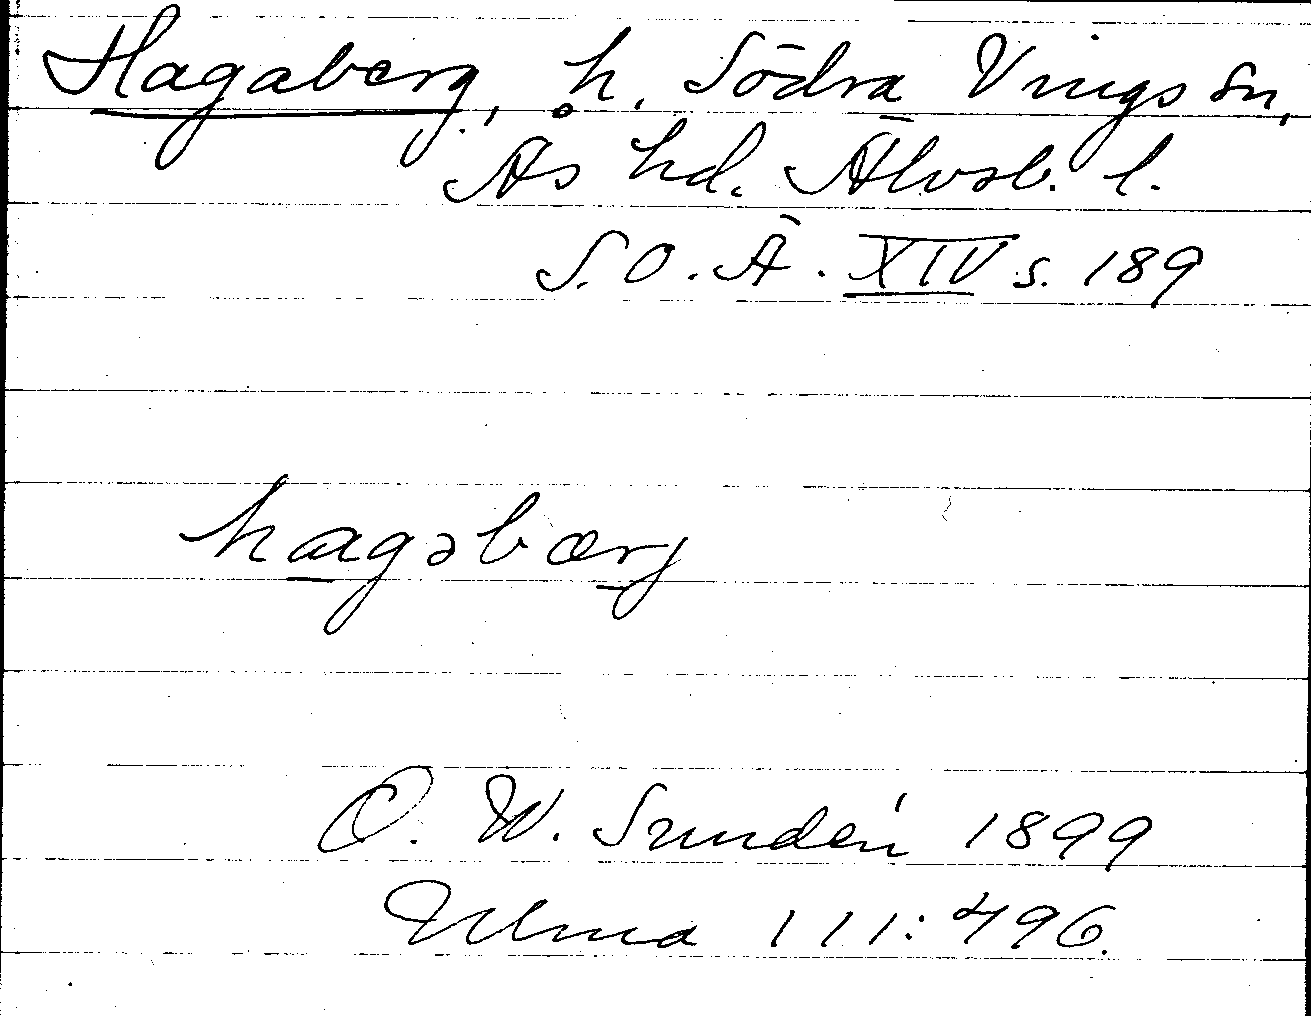 Hagaberg, h. Södra Vings sn,
Ås hd. Älvsb. l.
S.O.Ä. XIV s. 189
hagəbærj
O. W. Sundén 1899
Ulma 111:496.